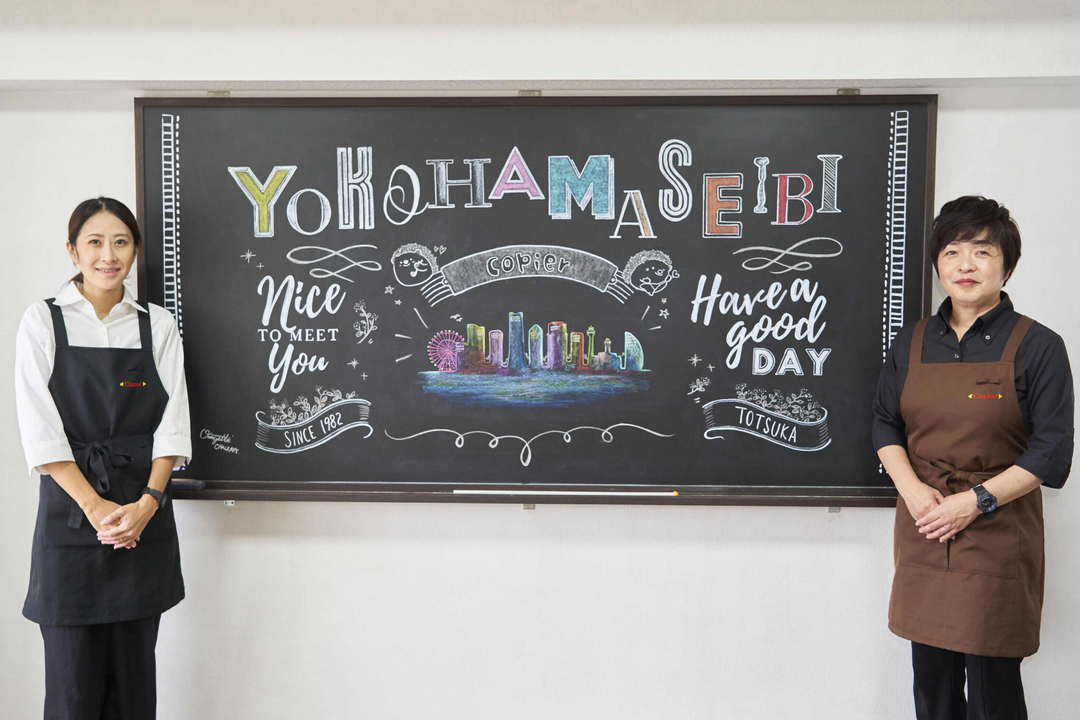 YOKOHAMA SEIBI
copier
Nice
TO MEET
You
Have a
good
DAY
SINCE 1982
TOTSUKA
Copier
Copier